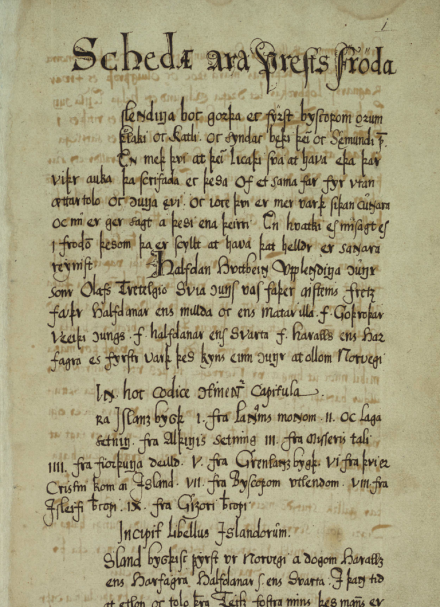 1
Schedæ ara Prests Fróda
slendina boc gørþa ec fyrst byscopom órum
þlaki oc Katli. oc syndac bęþi þei oc Sęmundi p.
En meþ þvi at þei licaþi svá at hava eþa þar
viþr auka. þa scrifaþa ec þesa of et sama far fyr utan
áttar tolo oc Junga ęvi. oc iócc þvi er mer varþ siþan cunnara
oc nu er ger sagt a þesi en a þeirri. En hvatki es misagt es
i frodom þesom þa er scyllt at hava þat helldr er sannara
reynist. Halfdan hvitbein Upplendina Jungr
sonr Olafs Tretelgio Svia Jungs vas faþer Aisteins fretz
faþor Halfdanar ens millda oc ens matar illa. f. Goþroþar
Veiþi Jungs. f. halfdanar ens Svarta f. haralls ens Har
fagra es fyrstr varþ þes kyns einn Jungr at ollom Norvegi
In hoc codice continentur Capitula
ra Islanz bygþ I. fra landnams monom. II. oc laga
setning. fra Alþingis setning III. fra Miseris tali
IIII. fra fiorþunga deilld. V. fra Grenlanz bygþ. VI. fra þvi er
Cristni kom a Island. VII. fra Byscopom utlendom. VIII. fra
Isleifi byscopi. IX. fra Gizori byscopi
Incipit libellus Islandorum.
Sland bygþisk fyrst ur Norvegi a dogom Haralls
ens Harfagra. Halfdanar s. ens Svarta. I þan tid
at ętlon oc tolo þeira Teitz fostra mins þes manns er